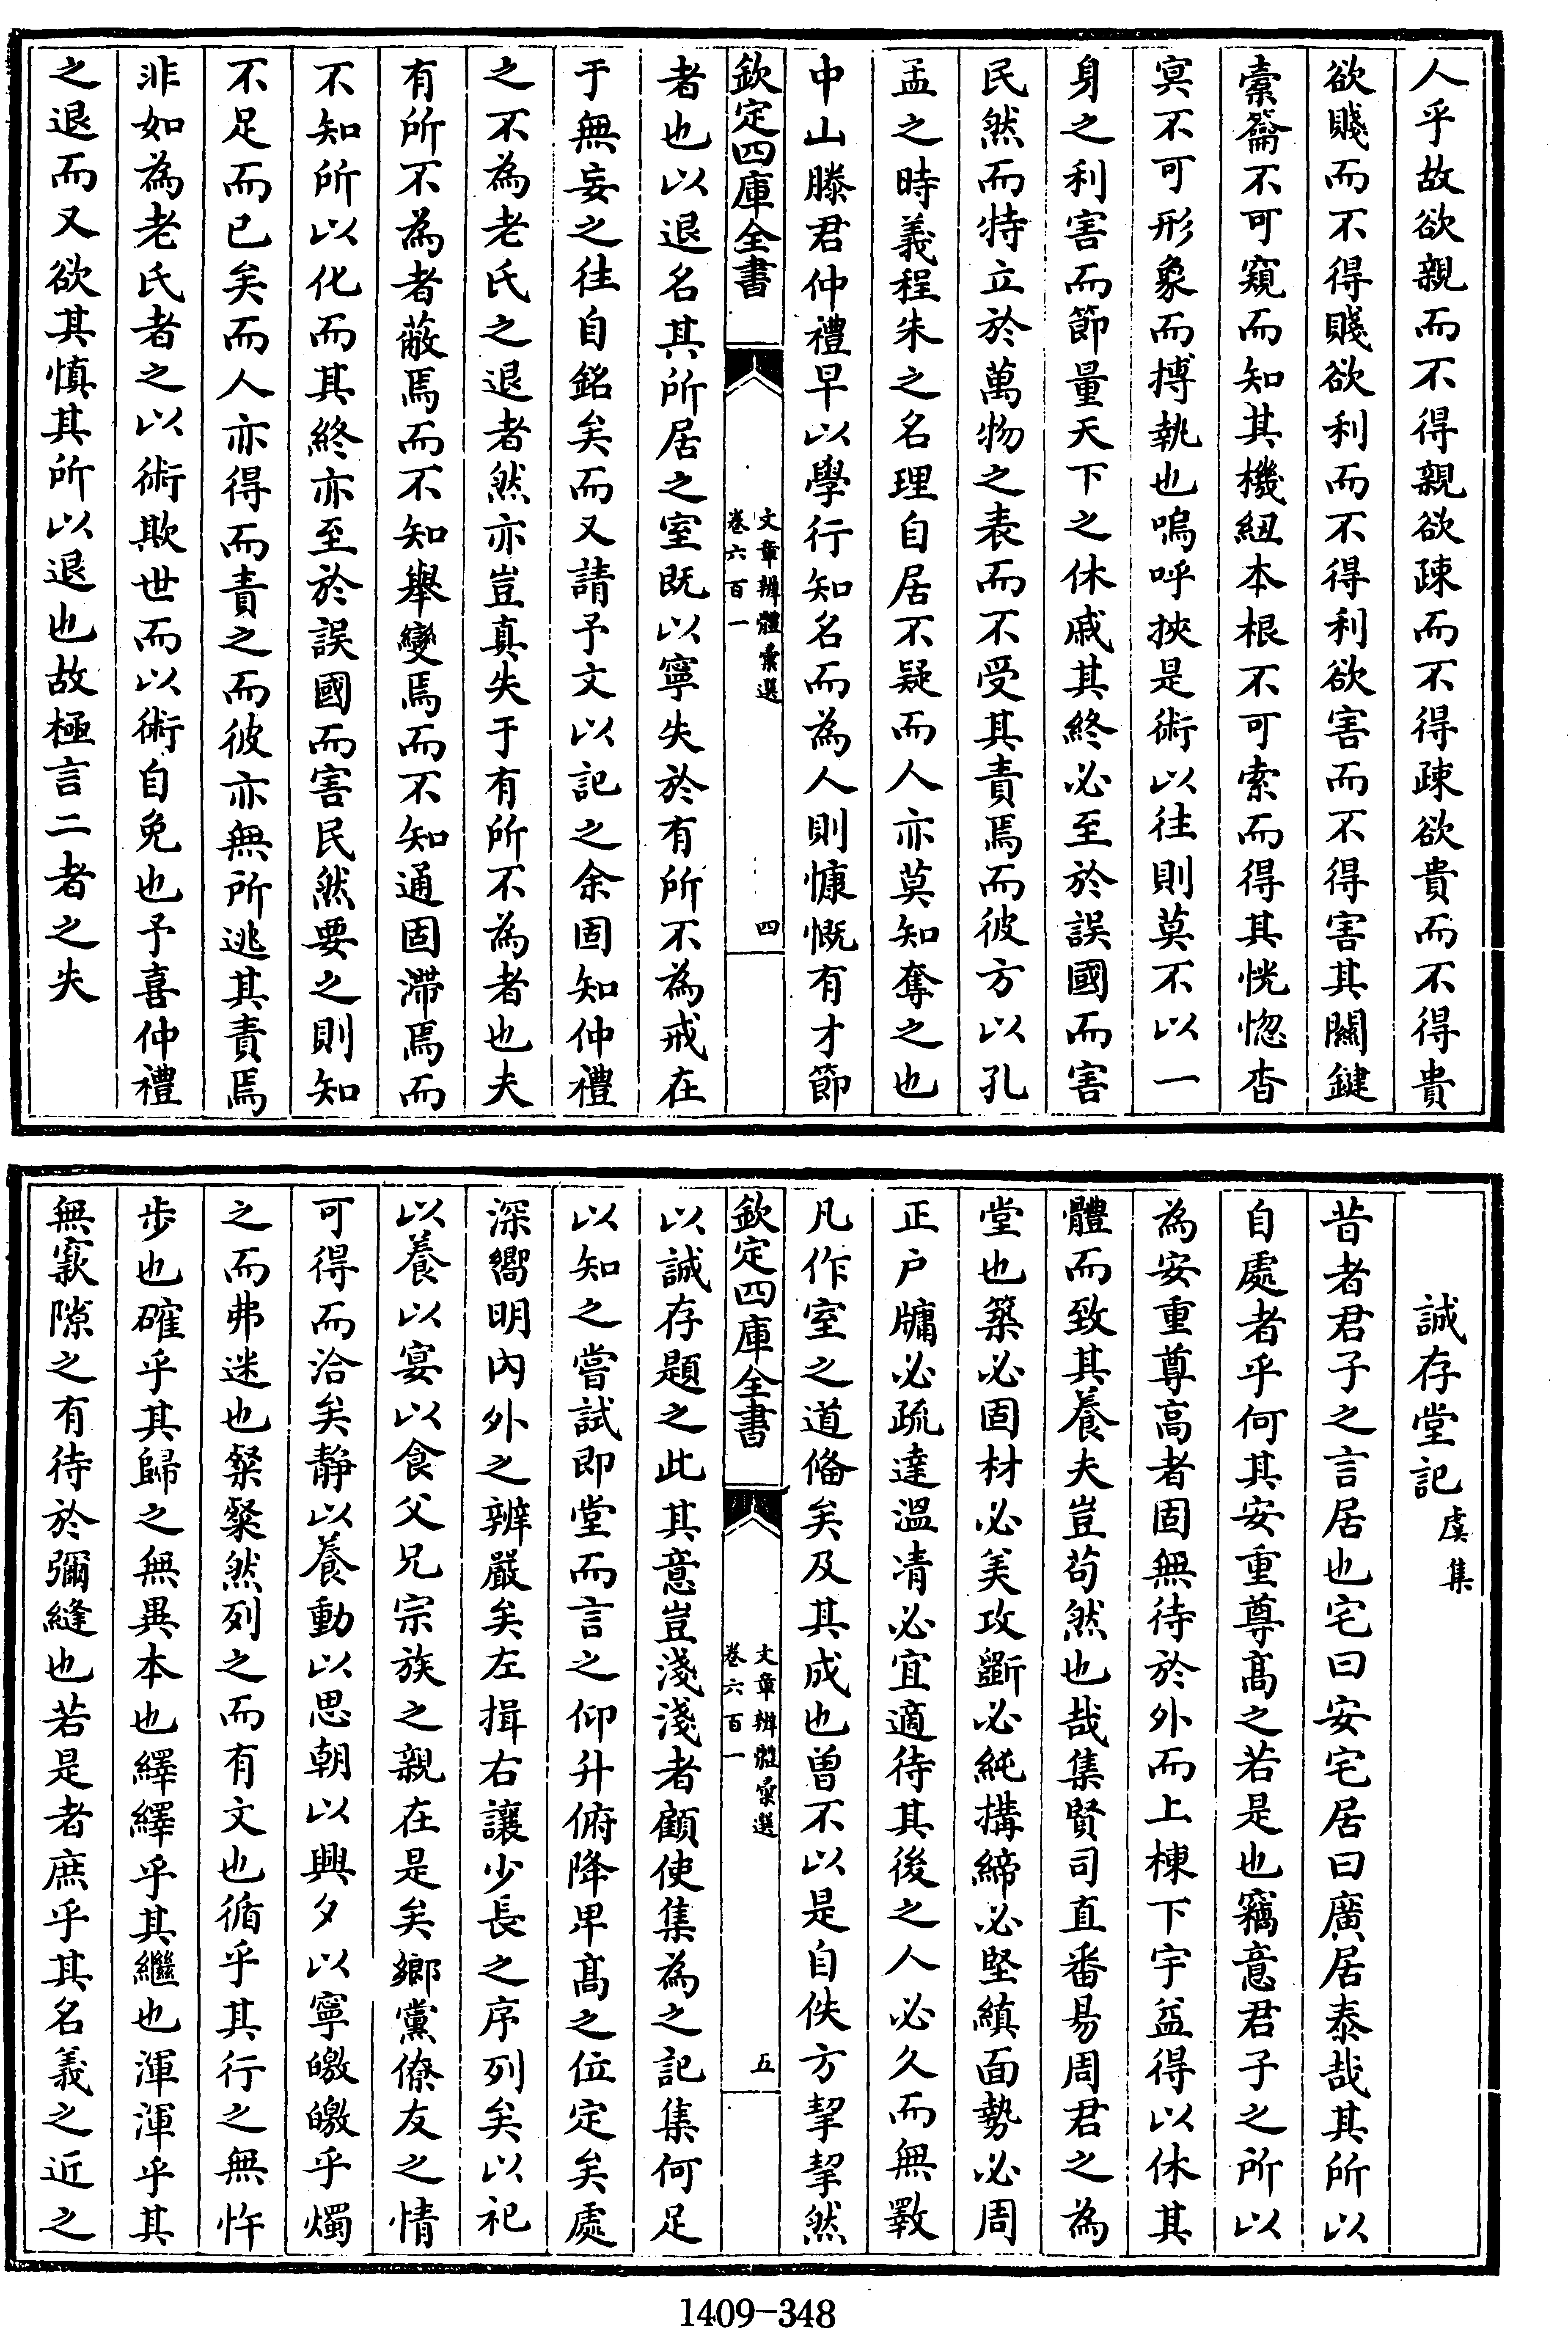 人乎故欲親而不得親欲疎而不得疎欲貴而不得貴
欲賤而不得賤欲利而不得利欲害而不得害其關鍵
橐籥不可窺而知其機紐本根不可索而得其恍惚杳
冥不可形象而搏執也嗚呼挾是術以往則莫不以一
身之利害而節量天下之休戚其終必至於誤國而害
民然而特立於萬物之表而不受其責焉而彼方以孔
孟之時義程朱之名理自居不疑而人亦莫知奪之也
中山滕君仲禮早以學行知名而為人則慷慨有才節
欽定四庫全書
文章辨體彙選
卷六百一
四
者也以退名其所居之室既以寧失於有所不為戒在
于無妄之往自銘矣而又請予文以記之余固知仲禮
之不為老氏之退者然亦豈真失于有所不為者也夫
有所不為者蔽焉而不知舉變焉而不知通固滯焉而
不知所以化而其終亦至於誤國而害民然要之則知
不足而已矣而人亦得而責之而彼亦無所逃其責焉
非如為老氏者之以術欺世而以術自免也予喜仲禮
之退而又欲其慎其所以退也故極言二者之失
誠存堂記
虞集
昔者君子之言居也宅曰安宅居曰廣居泰哉其所以
自處者乎何其安重尊髙之若是也竊意君子之所以
為安重尊高者固無待於外而上棟下宇益得以休其
體而致其養夫豈苟然也哉集賢司直番易周君之為
堂也築必固材必美攻斵必純構締必堅縝面勢必周
正户牗必疏達溫凊必宜適待其後之人必久而無斁
凡作室之道俻矣及其成也曽不以是自佚方挈挈然
欽定四庫全書
文章辨體彙選
卷六百一
五
以誠存題之此其意豈淺淺者顧使集為之記集何足
以知之嘗試即堂而言之仰升俯降卑髙之位定矣處
深嚮明內外之辨嚴矣左揖右讓少長之序列矣以祀
以養以宴以食父兄宗族之親在是矣鄉黨僚友之情
可得而洽矣靜以養動以思朝以興夕以寧皦皦乎燭
之而弗迷也粲粲然列之而有文也循乎其行之無忤
步也確乎其歸之無異本也繹繹乎其繼也渾渾乎其
無窾隙之有待於彌縫也若是者庶乎其名義之近之
1409-348